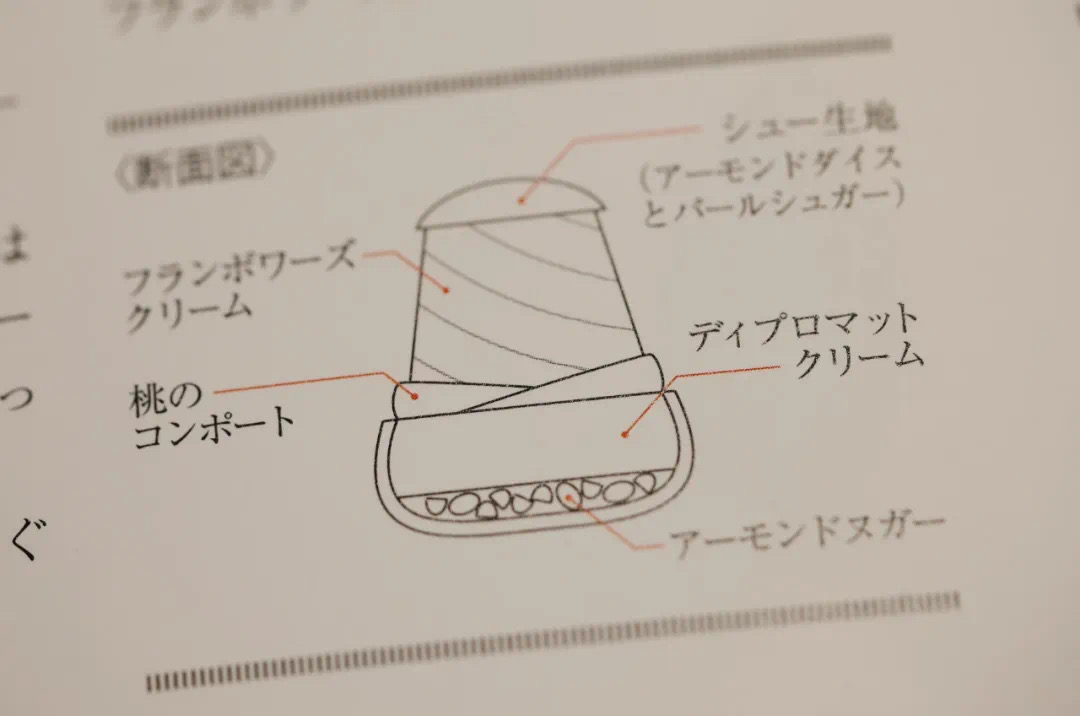 フランボワ
〈断面図〉
シュー生地
(アーモンドダイス
とパールシュガー)
フランボワーズ
クリーム
ディプロマット
クリーム
桃の
コンポート
アーモンドヌガー
ま
ー
つ
ぐ